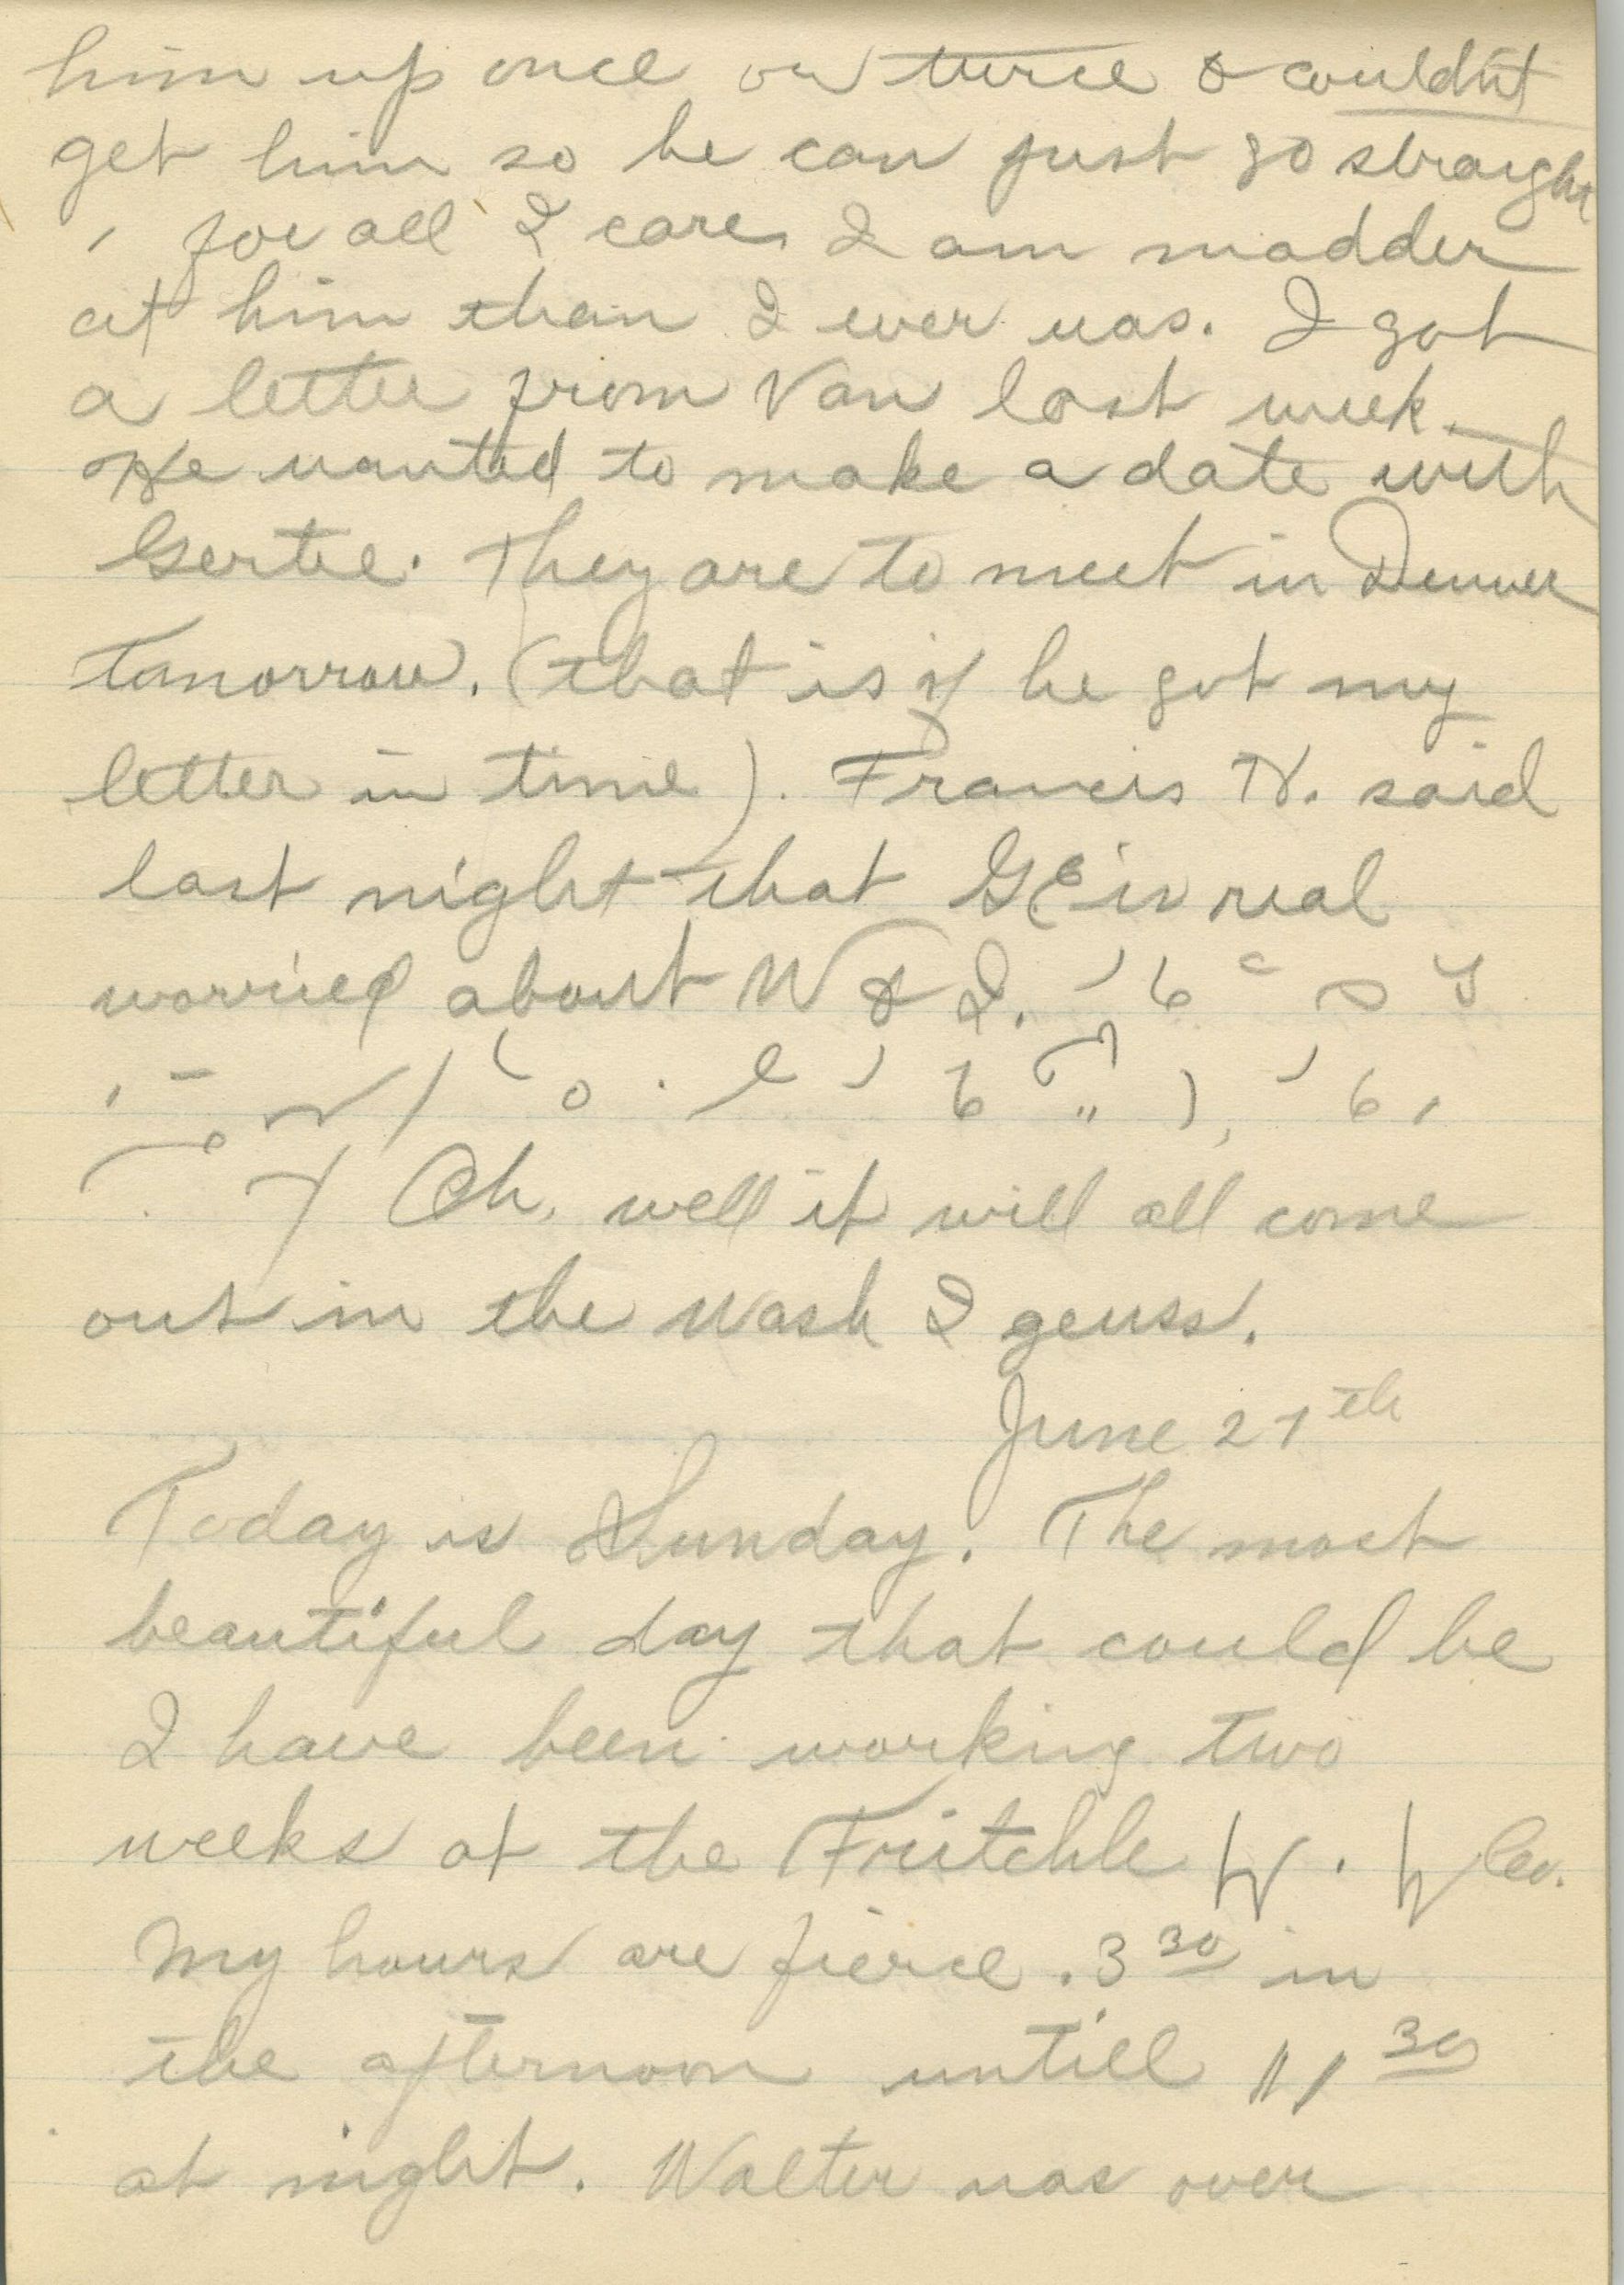 him up once or twice & couldn't
get him so he can just go straight
for all I care. I am madder
at him than I ever was. I got
a letter from Van last week.
He wanted to make a date with
Gertie. They are to meet in Denver
tomorrow. (that is if he got my
letter in time). Francis N. said
last night that GE is real
worried about W & I.
Oh, well it will all come
out in the wash I geuss.
June 27th
Today is Sunday. The most
beautiful day that could be
I have been working two
weeks at the Fritchle Co.
My hours are fierce. 3 30 in
the afternoon untill 11 30
at night. Walter was over